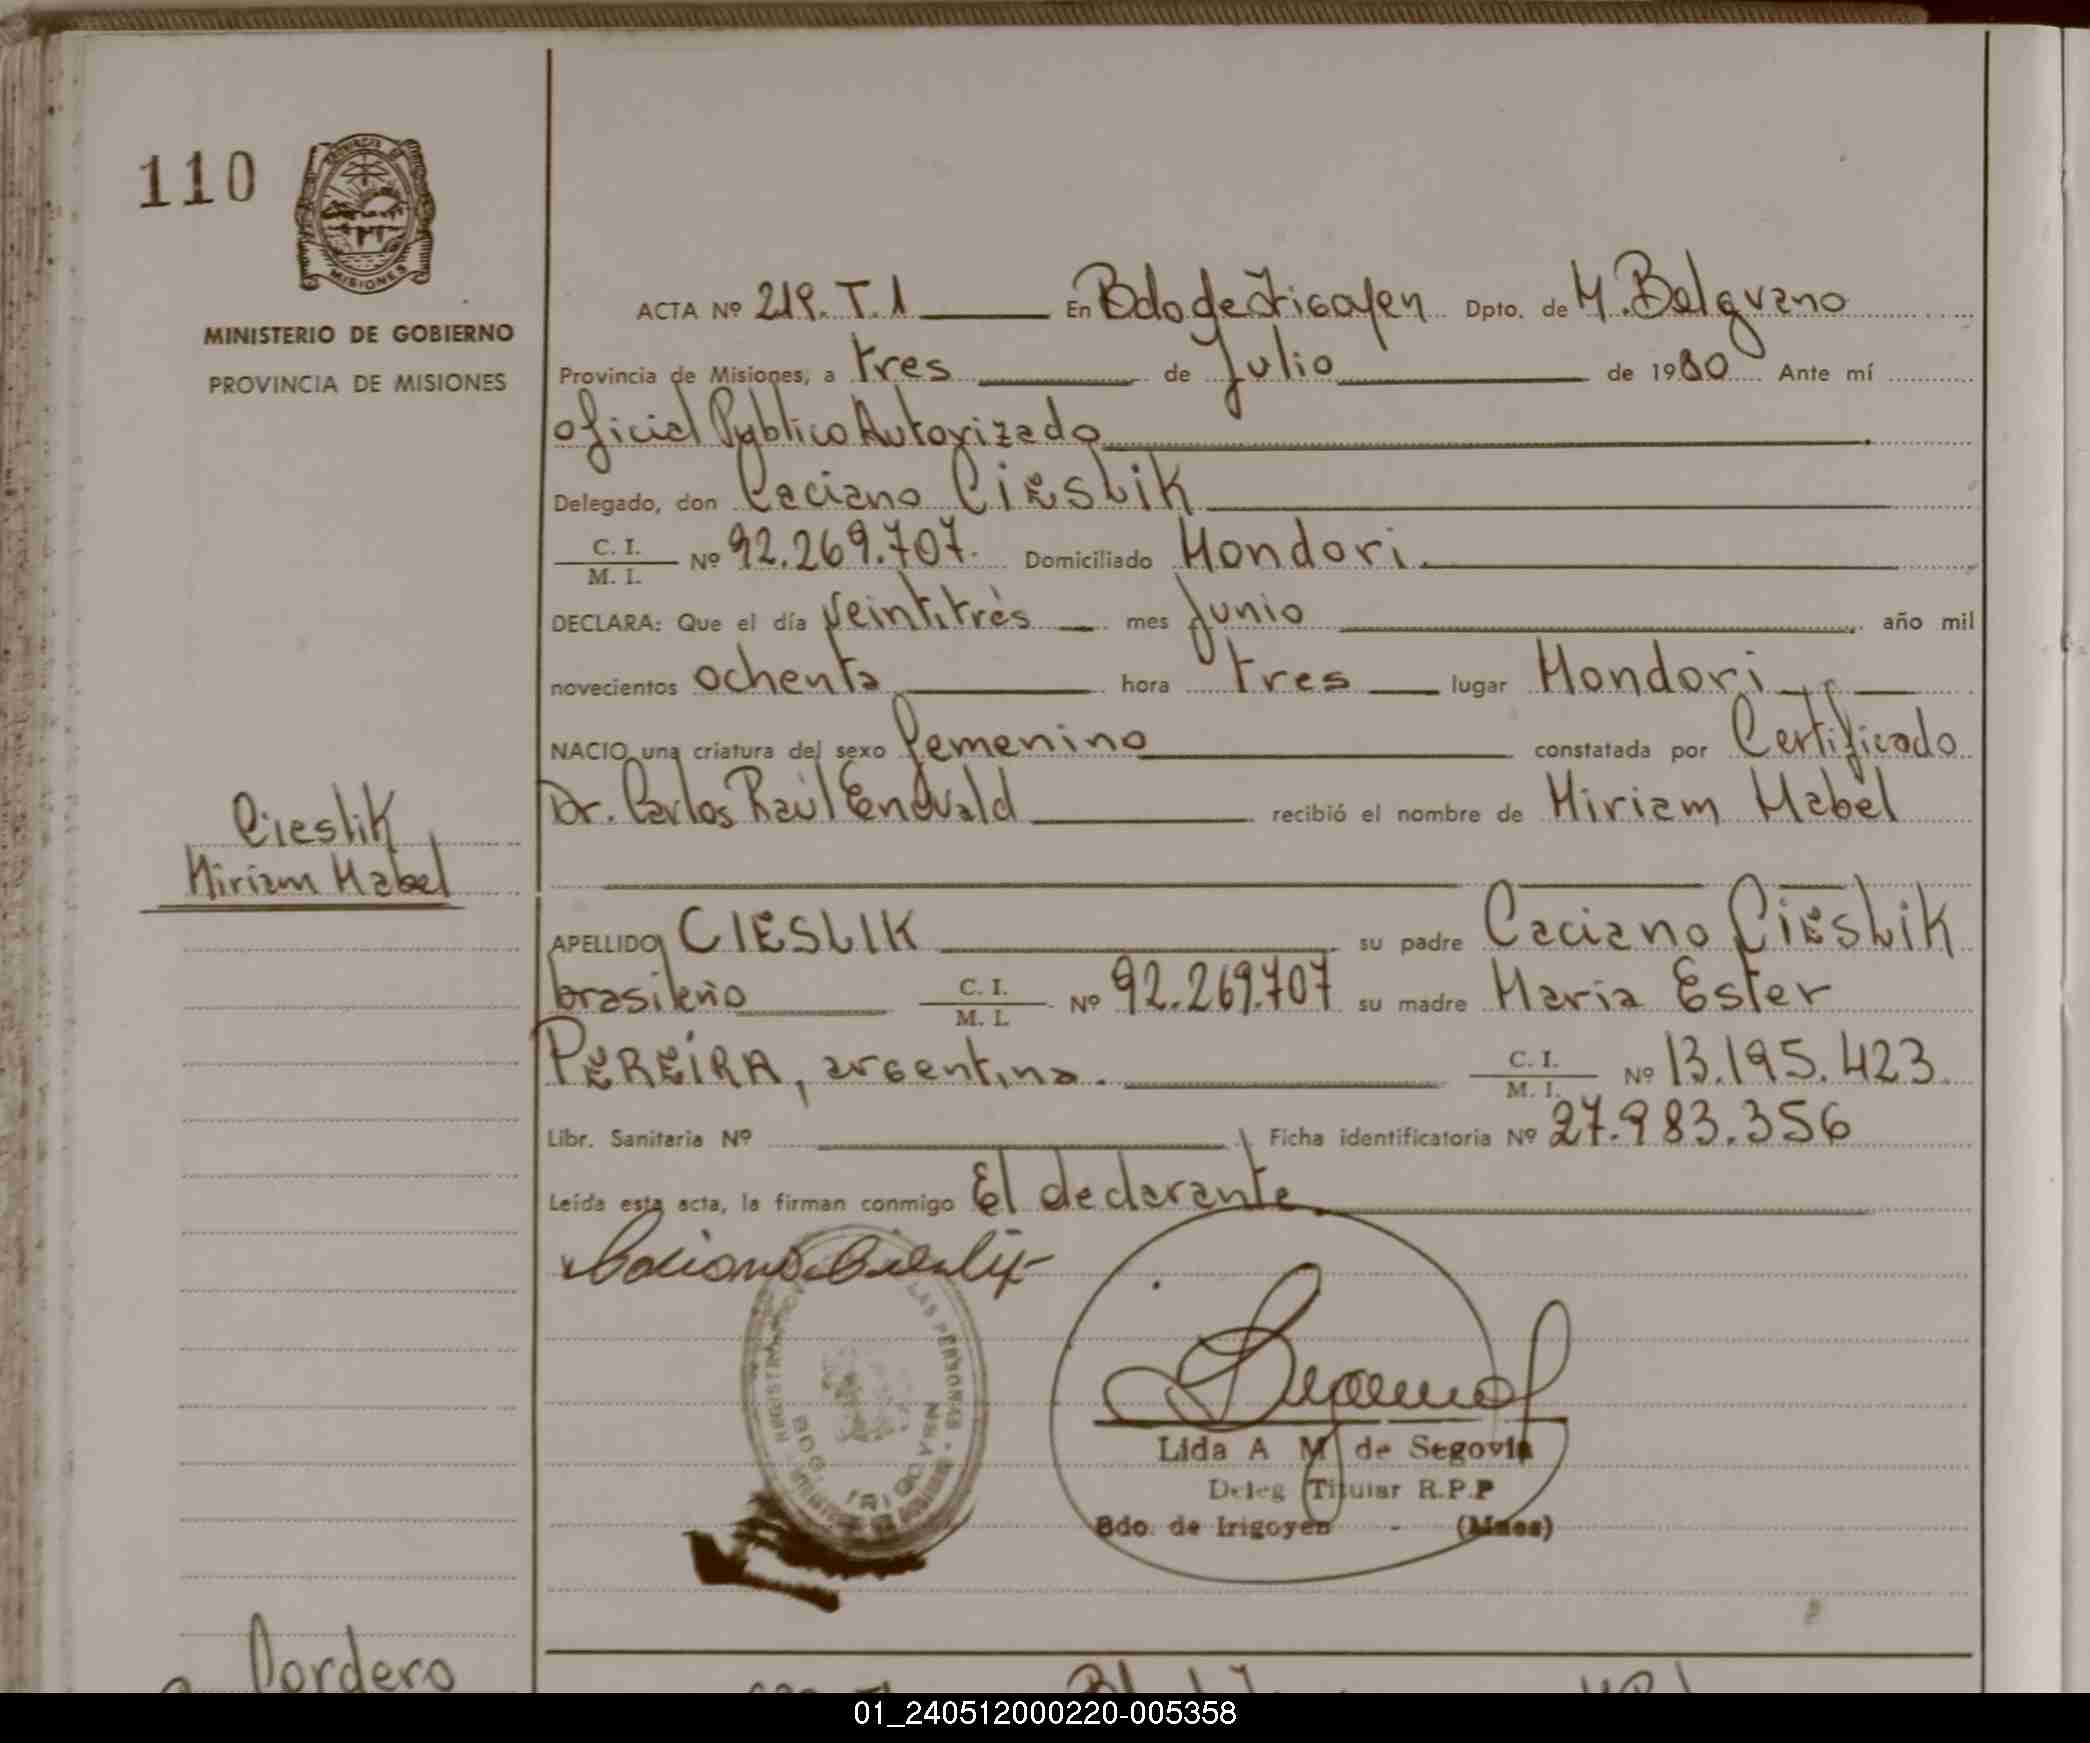 110
MISIONES
MINISTERIO DE GOBIERNO
PROVINCIA DE MISIONES
ACTA Nº 219. T.1 En Bdo de Irigoyen Dpto. de M. Belgrano
Provincia de Misiones, a tres de Julio de 1980 Ante mí
oficial Público Autorizado
Delegado, don Caciano CIESLIK
C. I.
M. I. Nº 92.269.707. Domiciliado Mondori
DECLARA: Que el día veintitrés mes Junio año mil
novecientos ochenta hora tres lugar Mondori
NACIO una criatura del sexo femenino constatada por Certificado
Dr. Carlos Raúl Endvald recibió el nombre de Miriam Mabel
Cieslik
Miriam Mabel
APELLIDO CIESLIK su padre Caciano CIESLIK
brasileño C. I.
M. I. Nº 92.269.707 su madre Maria Ester
PEREIRA, argentina. C. I.
M. I. Nº 13.195.423
Libr. Sanitaria Nº Ficha identificatoria Nº 27.983.356
Leída esta acta, la firman conmigo El declarante
LAS PERSONAS
BDO. IRIGOYEN
Lida A M de Segovia
Deleg Titular R.P.P
Bdo. de Irigoyen - (Mnes)
Cordero
01_240512000220-005358